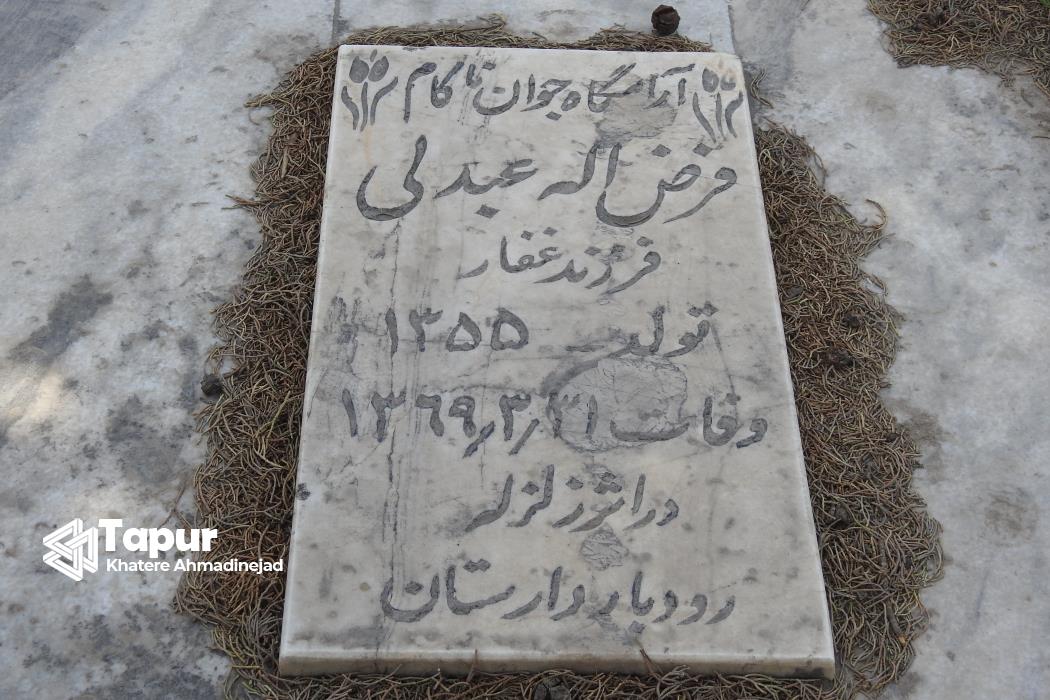 آرامگاه جوان ناکام
فرض اله عبدلی
فرزند غفار
تولد ۱۳۵۵
وفات ۱۳۶۹/۳/۳۱
در اثر زلزله
رودبار دارستان
Tapur
Khatere Ahmadinejad